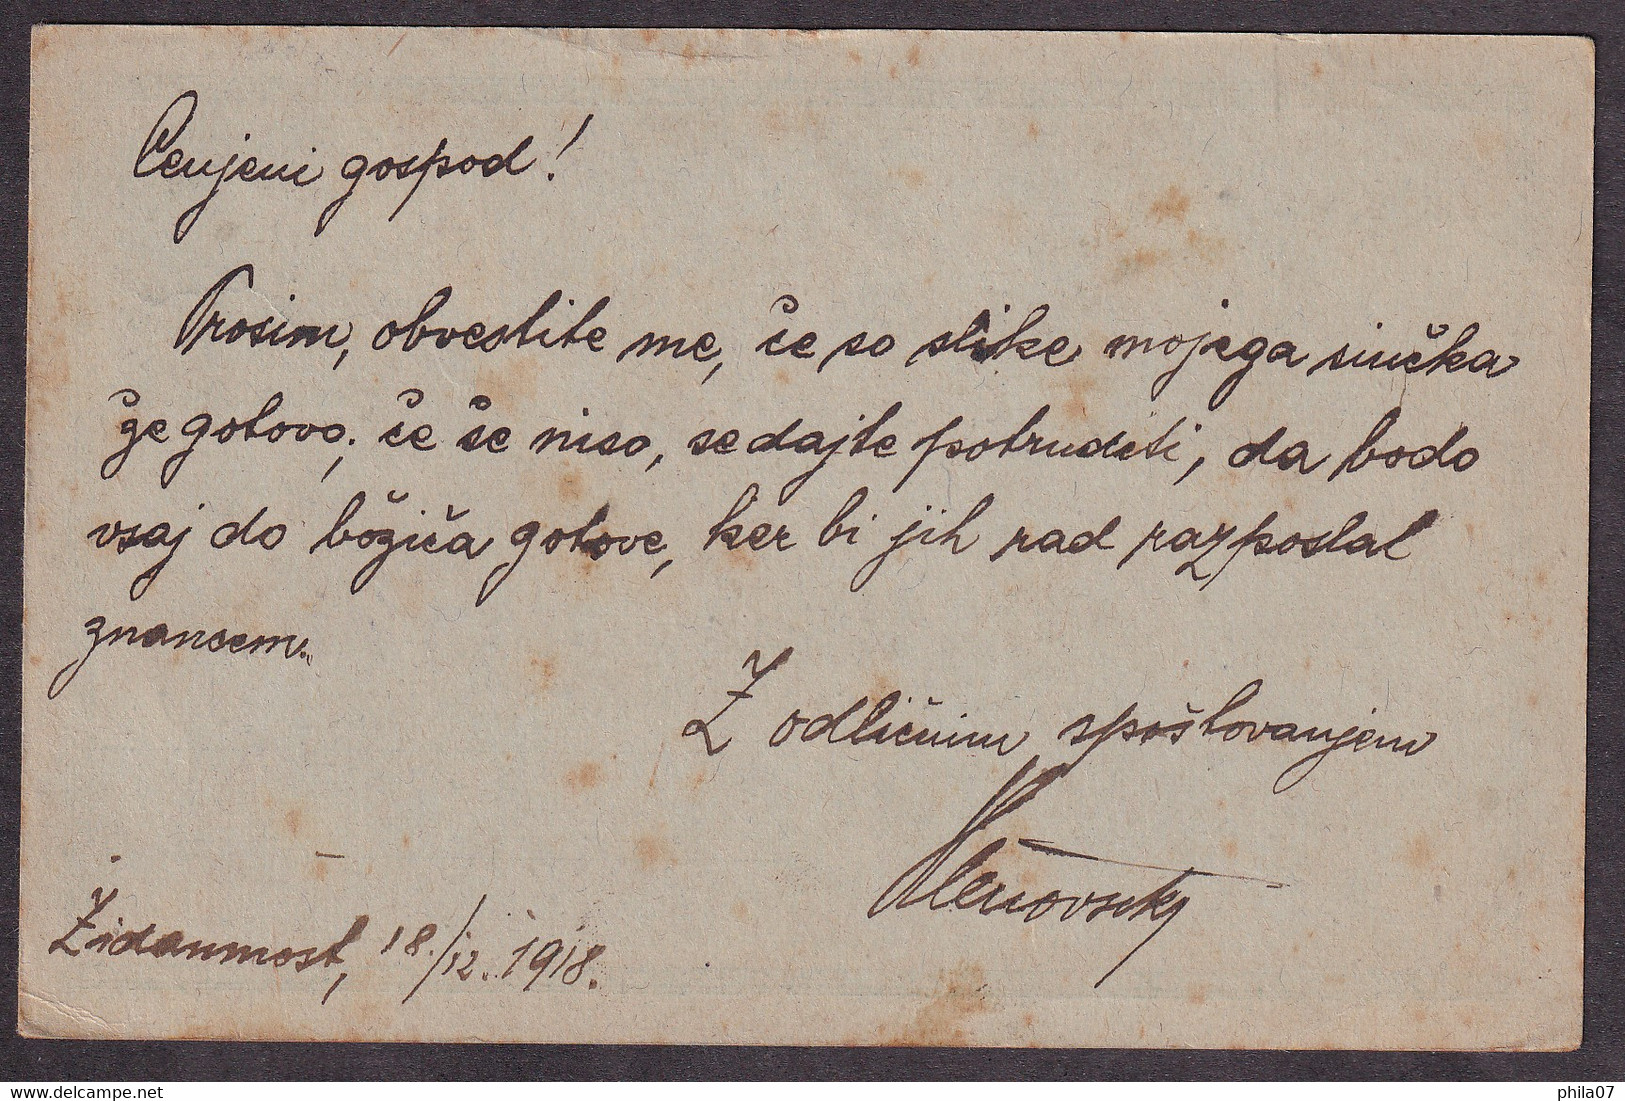 Cenjeni gospod!
Prosim, obvestite me, če so slike mojega sinčka
že gotovo; če še niso, se dajte potruditi, da bodo
vsaj do božiča gotove, ker bi jih rad razposlal
znancem.
Z odličnim spoštovanjem
Zidanmost, 18./12. 1918.
phila07